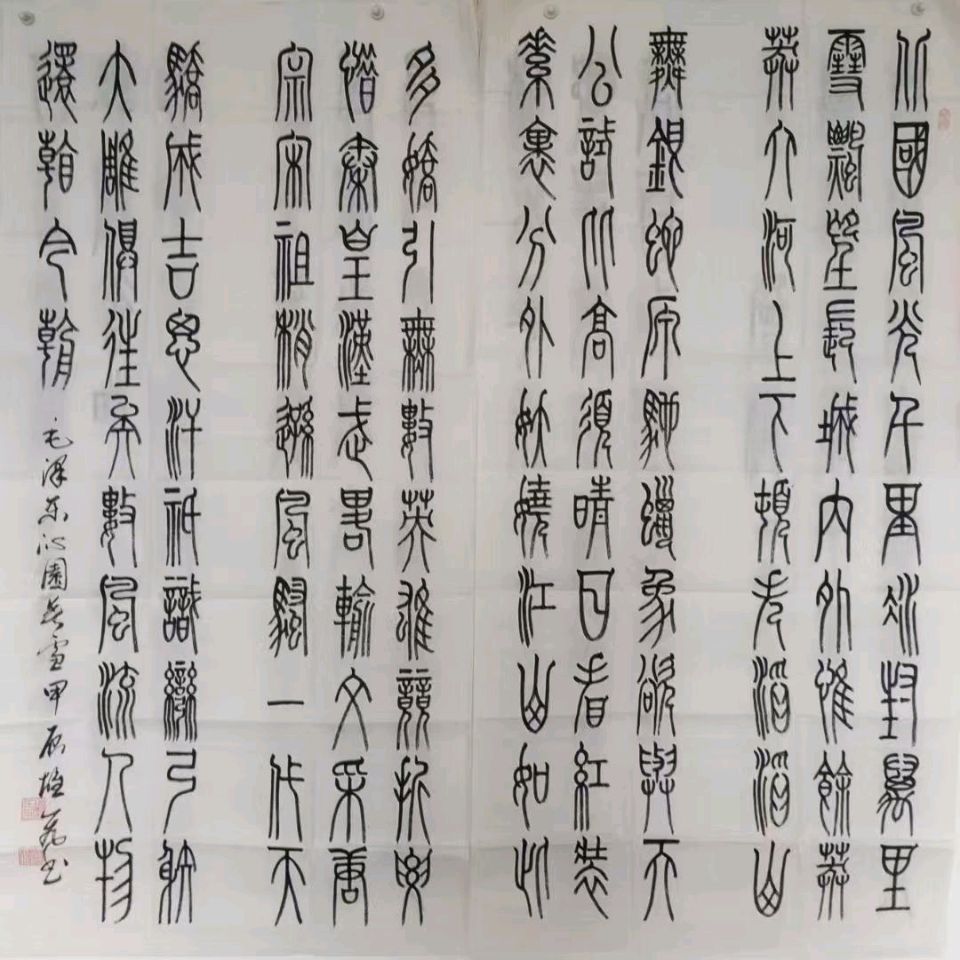 北國風光千里冰封萬里
雪飄望長城內外惟餘莽
莽大河上下頓失滔滔山
舞銀蛇原馳蠟象欲與天
公試比高須晴日看紅裝
素裹分外妖嬈江山如此
多嬌引無數英雄競折腰
惜秦皇漢武畧輸文采唐
宗宋祖稍遜風騷一代天
驕成吉思汗祇識彎弓射
大雕俱往矣數風流人物
還看今朝
毛澤東沁園春雪甲辰书